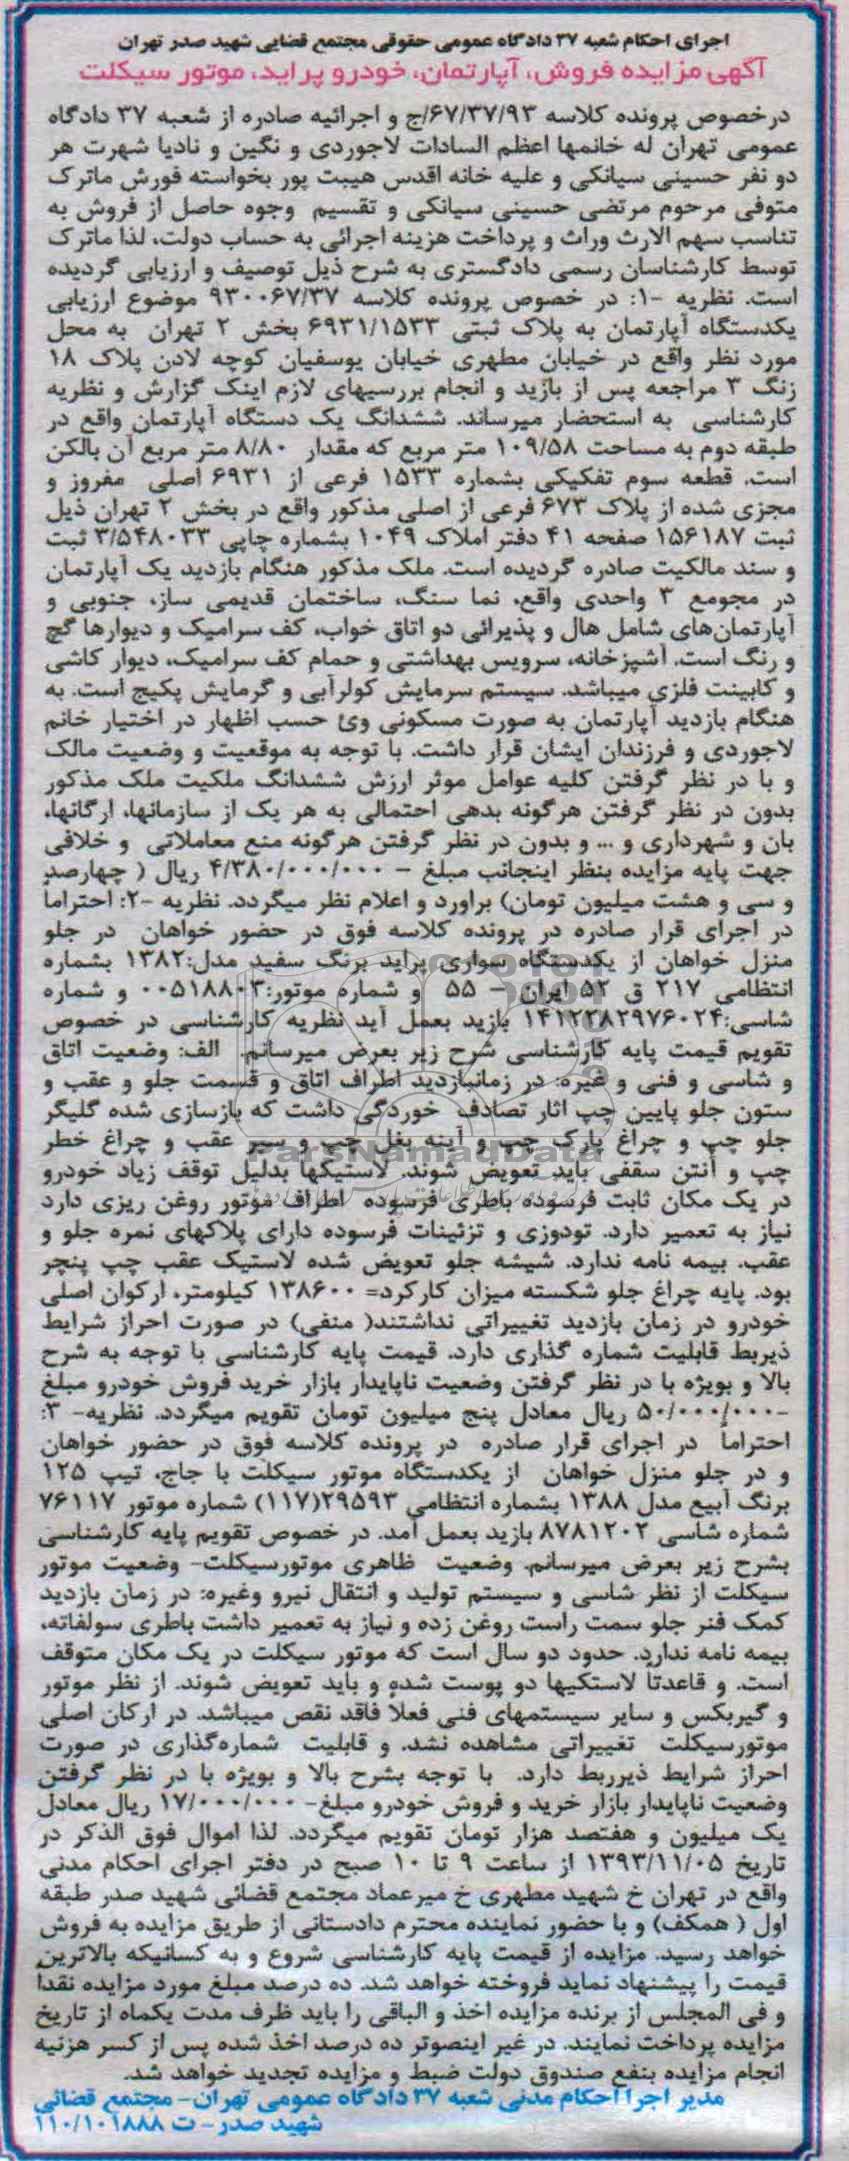 اجرای احکام شعبه ۳۷ دادگاه عمومی حقوقی مجتمع قضایی شهید صدر تهران
آگهی مزایده فروش، آپارتمان، خودرو پراید، موتور سیکلت
درخصوص پرونده کلاسه ۶۷/۳۷/۹۳/ج و اجرائیه صادره از شعبه ۳۷ دادگاه
عمومی تهران له خانمها اعظم السادات لاجوردی و نگین و نادیا شهرت هر
دو نفر حسینی سیانکی و علیه خانه اقدس هیبت پور بخواسته فورش ماترک
متوفی مرحوم مرتضی حسینی سیانکی و تقسیم وجوه حاصل از فروش به
تناسب سهم الارث وراث و پرداخت هزینه اجرائی به حساب دولت، لذا ماترک
توسط کارشناسان رسمی دادگستری به شرح ذیل توصیف و ارزیابی گردیده
است. نظریه -۱: در خصوص پرونده کلاسه ۹۳۰۰۶۷/۳۷ موضوع ارزیابی
یکدستگاه آپارتمان به پلاک ثبتی ۶۹۳۱/۱۵۳۳ بخش ۲ تهران به محل
مورد نظر واقع در خیابان مطهری خیابان یوسفیان کوچه لادن پلاک ۱۸
زنگ ۳ مراجعه پس از بازید و انجام بررسیهای لازم اینک گزارش و نظریه
کارشناسی به استحضار میرساند. ششدانگ یک دستگاه آپارتمان واقع در
طبقه دوم به مساحت ۱۰۹/۵۸ متر مربع که مقدار ۸/۸۰ متر مربع آن بالکن
است. قطعه سوم تفکیکی بشماره ۱۵۳۳ فرعی از ۶۹۳۱ اصلی مفروز و
مجزی شده از پلاک ۶۷۳ فرعی از اصلی مذکور واقع در بخش ۲ تهران ذیل
ثبت ۱۵۶۱۸۷ صفحه ۴۱ دفتر املاک ۱۰۴۹ بشماره چاپی ۳/۵۴۸۰۳۳ ثبت
و سند مالکیت صادره گردیده است. ملک مذکور هنگام بازدید یک آپارتمان
در مجومع ۳ واحدی واقع، نما سنگ، ساختمان قدیمی ساز، جنوبی و
آپارتمان‌های شامل هال و پذیرائی دو اتاق خواب، کف سرامیک و دیوارها گچ
و رنگ است. آشپزخانه، سرویس بهداشتی و حمام کف سرامیک، دیوار کاشی
و کابینت فلزی میباشد. سیستم سرمایش کولرآبی و گرمایش پکیج است. به
هنگام بازدید آپارتمان به صورت مسکونی وئ حسب اظهار در اختیار خانم
لاجوردی و فرزندان ایشان قرار داشت. با توجه به موقعیت و وضعیت مالک
و با در نظر گرفتن کلیه عوامل موثر ارزش ششدانگ ملکیت ملک مذکور
بدون در نظر گرفتن هرگونه بدهی احتمالی به هر یک از سازمانها، ارگانها،
بان و شهرداری و ... و بدون در نظر گرفتن هرگونه منع معاملاتی و خلافی
جهت پایه مزایده بنظر اینجانب مبلغ - ۴/۳۸۰/۰۰۰/۰۰۰ ریال ( چهارصد
و سی و هشت میلیون تومان) براورد و اعلام نظر میگردد. نظریه -۲: احتراما
در اجرای قرار صادره در پرونده کلاسه فوق در حضور خواهان در جلو
منزل خواهان از یکدستگاه سواری پراید برنگ سفید مدل:۱۳۸۲ بشماره
انتظامی ۲۱۷ ق ۵۲ ایران - ۵۵ و شماره موتور:۰۰۵۱۸۸۰۳ و شماره
شاسی:۱۴۱۲۲۸۲۹۷۶۰۲۴ بازید بعمل آید نظریه کارشناسی در خصوص
تقویم قیمت پایه کارشناسی شرح زیر بعرض میرسانم. الف: وضعیت اتاق
و شاسی و فنی و غیره: در زمانبازدید اطراف اتاق و قسمت جلو و عقب و
ستون جلو پایین چپ اثار تصادف خوردگی داشت که بازسازی شده گلیگر
جلو چپ و چراغ پارک چپ و آینه بغل چپ و سپر عقب و چراغ خطر
چپ و آنتن سقفی باید تعویض شوند. لاستیکها بدلیل توقف زیاد خودرو
در یک مکان ثابت فرسوده باطری فرسوده اطراف موتور روغن ریزی دارد
نیاز به تعمیر دارد. تودوزی و تزئینات فرسوده دارای پلاکهای نمره جلو و
عقب. بیمه نامه ندارد. شیشه جلو تعویض شده لاستیک عقب چپ پنچر
بود. پایه چراغ جلو شکسته میزان کارکرد= ۱۳۸۶۰۰ کیلومتر، ارکوان اصلی
خودرو در زمان بازدید تغییراتی نداشتند( منفی) در صورت احراز شرایط
ذیربط قابلیت شماره گذاری دارد. قیمت پایه کارشناسی با توجه به شرح
بالا و بویژه با در نظر گرفتن وضعیت ناپایدار بازار خرید فروش خودرو مبلغ
-۵۰/۰۰۰/۰۰۰ ریال معادل پنج میلیون تومان تقویم میگردد. نظریه- ۳:
احتراماً در اجرای قرار صادره در پرونده کلاسه فوق در حضور خواهان
و در جلو منزل خواهان از یکدستگاه موتور سیکلت با جاج، تیپ ۱۲۵
برنگ آبیع مدل ۱۳۸۸ بشماره انتظامی ۲۹۵۹۳(۱۱۷) شماره موتور ۷۶۱۱۷
شماره شاسی ۸۷۸۱۲۰۲ بازید بعمل آمد. در خصوص تقویم پایه کارشناسی
بشرح زیر بعرض میرسانم. وضعیت ظاهری موتورسیکلت- وضعیت موتور
سیکلت از نظر شاسی و سیستم تولید و انتقال نیرو وغیره: در زمان بازدید
کمک فنر جلو سمت راست روغن زده و نیاز به تعمیر داشت باطری سولفاته،
بیمه نامه ندارد. حدود دو سال است که موتور سیکلت در یک مکان متوقف
است. و قاعدتاً لاستکیها دو پوست شده و باید تعویض شوند. از نظر موتور
و گیربکس و سایر سیستمهای فنی فعلاً فاقد نقص میباشد. در ارکان اصلی
موتورسیکلت تغییراتی مشاهده نشد. و قابلیت شماره‌گذاری در صورت
احراز شرایط ذیرربط دارد. با توجه بشرح بالا و بویژه با در نظر گرفتن
وضعیت ناپایدار بازار خرید و فروش خودرو مبلغ- ۱۷/۰۰۰/۰۰۰ ریال معادل
یک میلیون و هفتصد هزار تومان تقویم میگردد. لذا اموال فوق الذکر در
تاریخ ۱۳۹۳/۱۱/۰۵ از ساعت ۹ تا ۱۰ صبح در دفتر اجرای احکام مدنی
واقع در تهران خ شهید مطهری خ میرعماد مجتمع قضائی شهید صدر طبقه
اول ( همکف) و با حضور نماینده محترم دادستانی از طریق مزایده به فروش
خواهد رسید. مزایده از قیمت پایه کارشناسی شروع و به کسانیکه بالاترین
قیمت را پیشنهاد نماید فروخته خواهد شد. ده درصد مبلغ مورد مزایده نقداً
و فی المجلس از برنده مزایده اخذ و الباقی را باید ظرف مدت یکماه از تاریخ
مزایده پرداخت نمایند. در غیر اینصوتر ده درصد اخذ شده پس از کسر هزنیه
انجام مزایده بنفع صندوق دولت ضبط و مزایده تجدید خواهد شد.
مدیر اجرا احکام مدنی شعبه ۳۷ دادگاه عمومی تهران- مجتمع قضائی
شهید صدر- ت ۱۱۰/۱۰۱۸۸۸
ParsNamadData